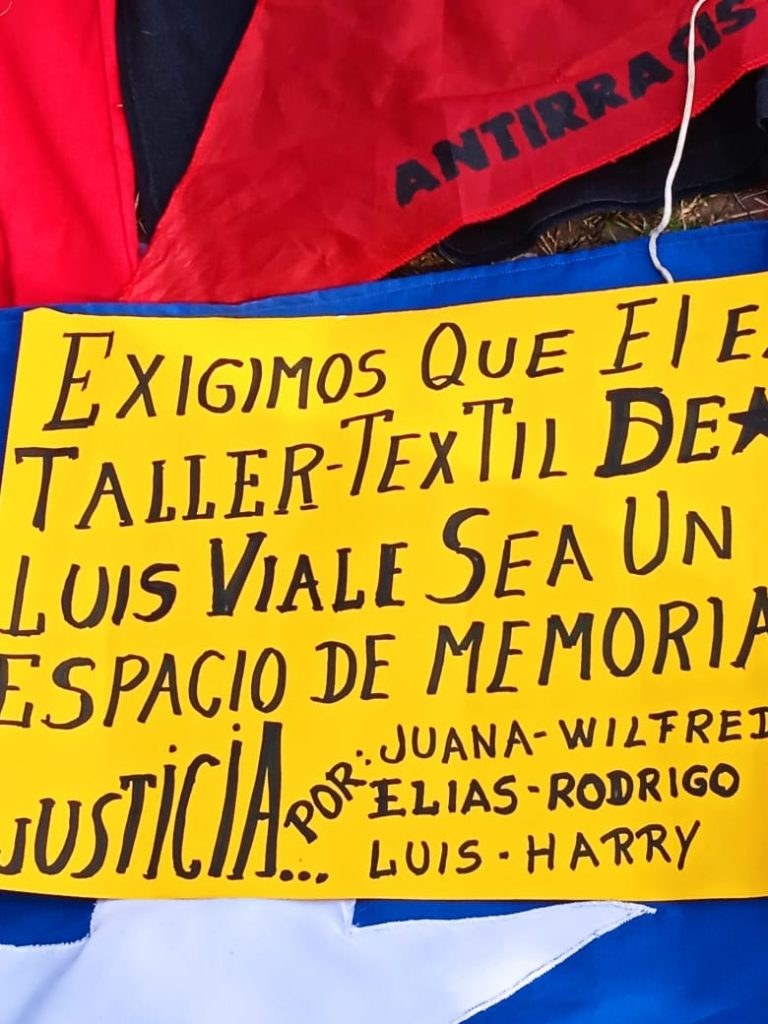 ANTIRRACIS
EXIGIMOS QUE El E
TALLER-TEXTIL DE★
LUIS VIALE SEA UN
ESPACIO DE MEMORIA
JUSTICIA... POR: JUANA-WILFRED
ELIAS-RODRIGO
LUIS-HARRY